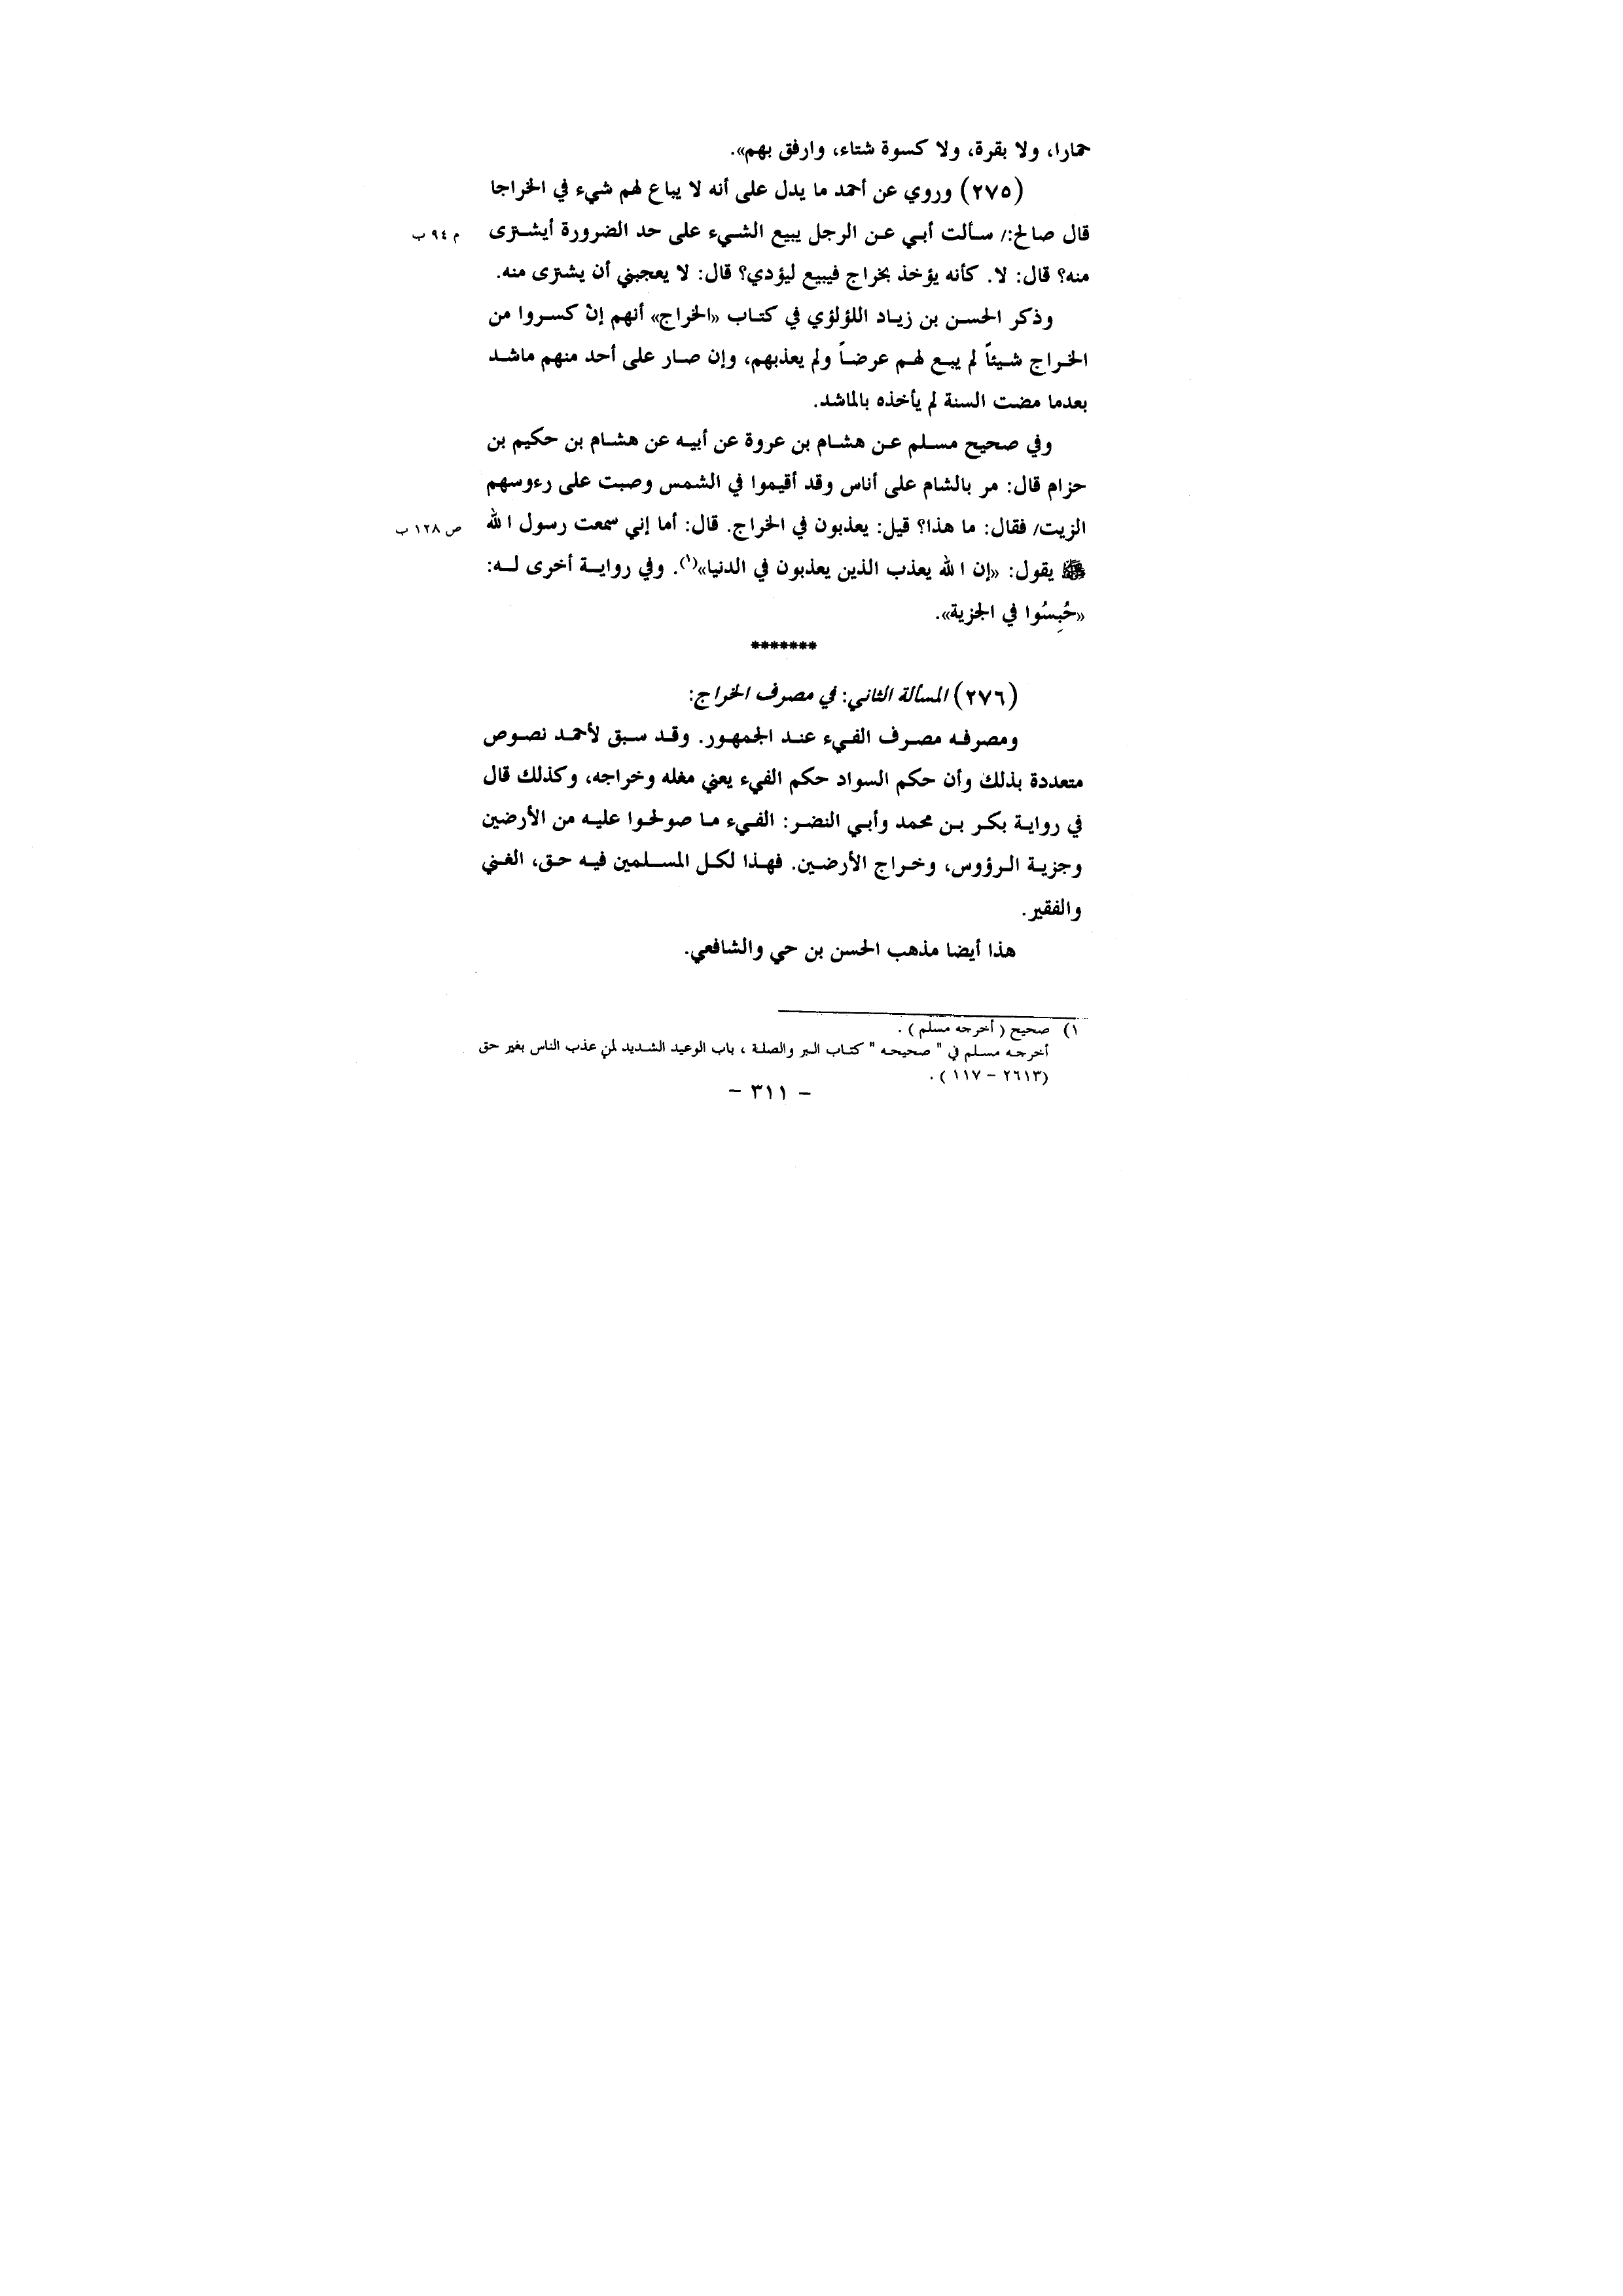 حمارا، ولا بقرة، ولا كسوة شتاء، وارفق بهم».
(٢٧٥) وروي عن أحمد ما يدل على أنه لا يباع لهم شيء في الخراجا
قال صالح:/ سألت أبي عن الرجل يبيع الشيء على حد الضرورة أيشترى
م ٩٤ ب
منه؟ قال: لا. كأنه يؤخذ بخراج فيبيع ليؤدي؟ قال: لا يعجبني أن يشترى منه.
وذكر الحسن بن زياد اللؤلؤي في كتاب «الخراج» أنهم إنْ كسروا من
الخراج شيئاً لم يبع لهم عرضاً ولم يعذبهم، وإن صار على أحد منهم ماشد
بعدما مضت السنة لم يأخذه بالماشد.
وفي صحيح مسلم عن هشام بن عروة عن أبيه عن هشام بن حكيم بن
حزام قال: مر بالشام على أناس وقد أقيموا في الشمس وصبت على رءوسهم
الزيت/ فقال: ما هذا؟ قيل: يعذبون في الخراج. قال: أما إني سمعت رسول الله
ص ١٢٨ ب
ﷺ يقول: «إن الله يعذب الذين يعذبون في الدنيا»(١). وفي رواية أخرى له:
«حُبِسُوا في الجزية».
*******
(٢٧٦) المسألة الثاني: في مصرف الخراج:
ومصرفه مصرف الفيء عند الجمهور. وقد سبق لأحمد نصوص
متعددة بذلك وأن حكم السواد حكم الفيء يعني مغله وخراجه، وكذلك قال
في رواية بكر بن محمد وأبي النضر: الفيء ما صولحوا عليه من الأرضين
وجزية الرؤوس، وخراج الأرضين. فهذا لكل المسلمين فيه حق، الغني
والفقير.
هذا أيضا مذهب الحسن بن حي والشافعي.
١) صحيح ( أخرجه مسلم ) .
أخرجه مسلم في " صحيحه " كتاب البر والصلة ، باب الوعيد الشديد لمن عذب الناس بغير حق
(٢٦١٣ – ١١٧ ) .
– ٣١١ –